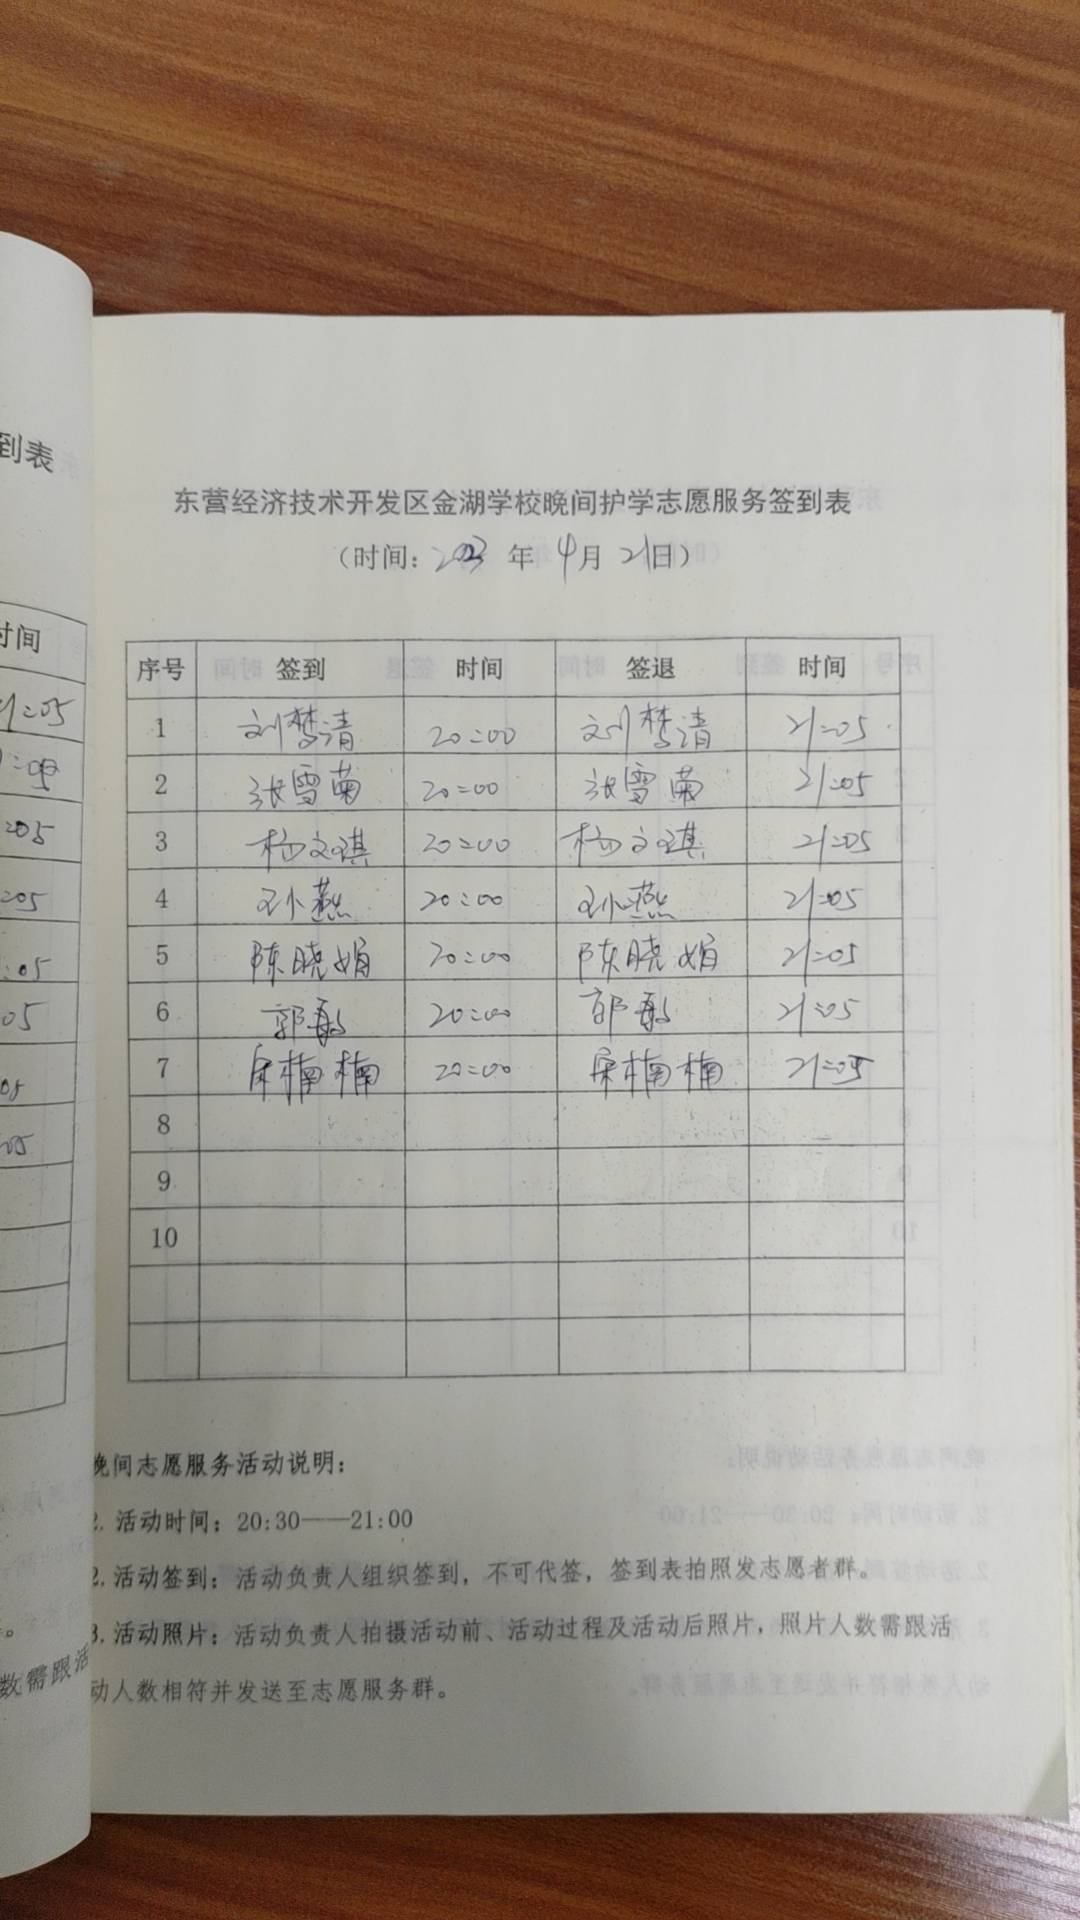 到表
时间
21:05
:05
:05
:05
:05
05
05
:05
数需跟活
东营经济技术开发区金湖学校晚间护学志愿服务签到表
(时间: 2023 年 4月 21日)
序号 签到 时间 签退 时间
1 刘梦清 20:00 刘梦清 21:05
2 张雪菊 20:00 张雪菊 21:05
3 杨文琪 20:00 杨文琪 21:05
4 孙燕 20:00 孙燕 21:05
5 陈晓娟 20:00 陈晓娟 21:05
6 郭 20:00 郭 21:05
7 楠楠 20:00 楠楠 21:05
8
9
10
晚间志愿服务活动说明:
2. 活动时间: 20:30——21:00
2. 活动签到: 活动负责人组织签到, 不可代签, 签到表拍照发志愿者群。
3. 活动照片: 活动负责人拍摄活动前、活动过程及活动后照片, 照片人数需跟活
动人数相符并发送至志愿服务群。